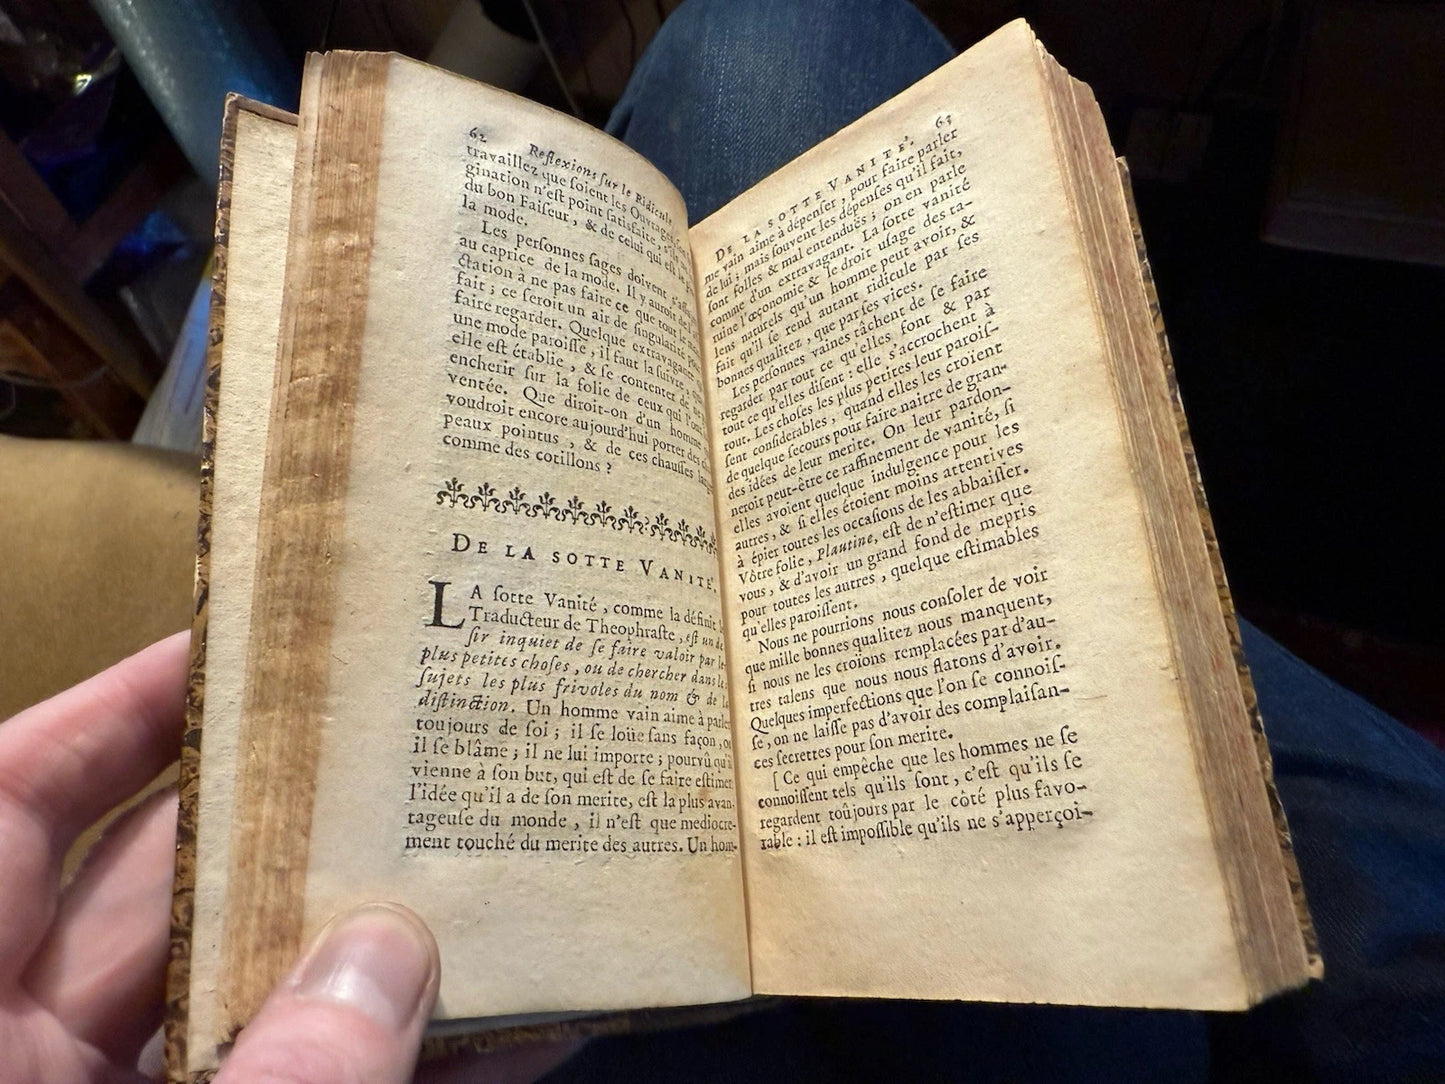 62 Reflexions ſur le Ridicule
travaillez que ſoient les Ouvrages,
gination n'eſt point ſatisfaite, s'ils
du bon Faiſeur, & de celui qui eſt le
la mode.
Les perſonnes ſages doivent
au caprice de la mode. Il y auroit de l'
ctation à ne pas faire ce que tout le
fait ; ce ſeroit un air de ſingularité pour
faire regarder. Quelque extravagante
une mode paroiſſe, il faut la ſuivre,
elle eſt établie, & ſe contenter de
encherir ſur la folie de ceux qui l'ont
ventée. Que diroit-on d'un homme
voudroit encore aujourd'hui porter des
peaux pointus, & de ces chauſſes
comme des cotillons ?
DE LA SOTTE VANITE'.
LA ſotte Vanité, comme la définit
Traducteur de Theophraſte, eſt un
ſir inquiet de ſe faire valoir par les
plus petites choſes, ou de chercher dans
ſujets les plus frivoles du nom & de la
diſtinction. Un homme vain aime à parler
toujours de ſoi ; il ſe loüe ſans façon,
il ſe blâme ; il ne lui importe ; pourvû
vienne à ſon but, qui eſt de ſe faire eſtimer
l'idée qu'il a de ſon merite, eſt la plus avan-
tageuſe du monde, il n'eſt que mediocre-
ment touché du merite des autres. Un hom-
DE LA SOTTE VANITE'. 63
me vain aime à dépenſer, pour faire parler
de lui ; mais ſouvent les dépenſes qu'il fait,
ſont folles & mal entenduës ; on en parle
comme d'un extravagant. La ſotte vanité
ruine l'œconomie & le droit uſage des ta-
lens naturels qu'un homme peut avoir, &
fait qu'il ſe rend autant ridicule par ſes
bonnes qualitez, que par ſes vices.
Les perſonnes vaines tâchent de ſe faire
regarder par tout ce qu'elles font & par
tout ce qu'elles diſent : elle s'accrochent à
tout. Les choſes les plus petites leur paroiſ-
ſent conſiderables, quand elles les croient
de quelque ſecours pour faire naitre de gran-
des idées de leur merite. On leur pardon-
neroit peut-être ce raffinement de vanité, ſi
elles avoient quelque indulgence pour les
autres, & ſi elles étoient moins attentives
à épier toutes les occaſions de les abbaiſſer.
Vôtre folie, Plautine, eſt de n'eſtimer que
vous, & d'avoir un grand fond de mepris
pour toutes les autres, quelque eſtimables
qu'elles paroiſſent.
Nous ne pourrions nous conſoler de voir
que mille bonnes qualitez nous manquent,
ſi nous ne les croïons remplacées par d'au-
tres talens que nous nous flatons d'avoir.
Quelques imperfections que l'on ſe connoiſ-
ſe, on ne laiſſe pas d'avoir des complaiſan-
ces ſecrettes pour ſon merite.
[ Ce qui empêche que les hommes ne ſe
connoiſſent tels qu'ils ſont, c'eſt qu'ils ſe
regardent toûjours par le côté plus favo-
rable : il eſt impoſſible qu'ils ne s'apperçoi-